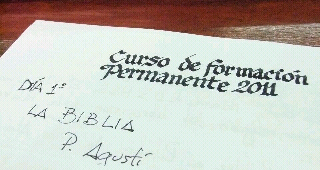 Curso de formación
Permanente 2011
DÍA 1º
LA BIBLIA
P. Agustí